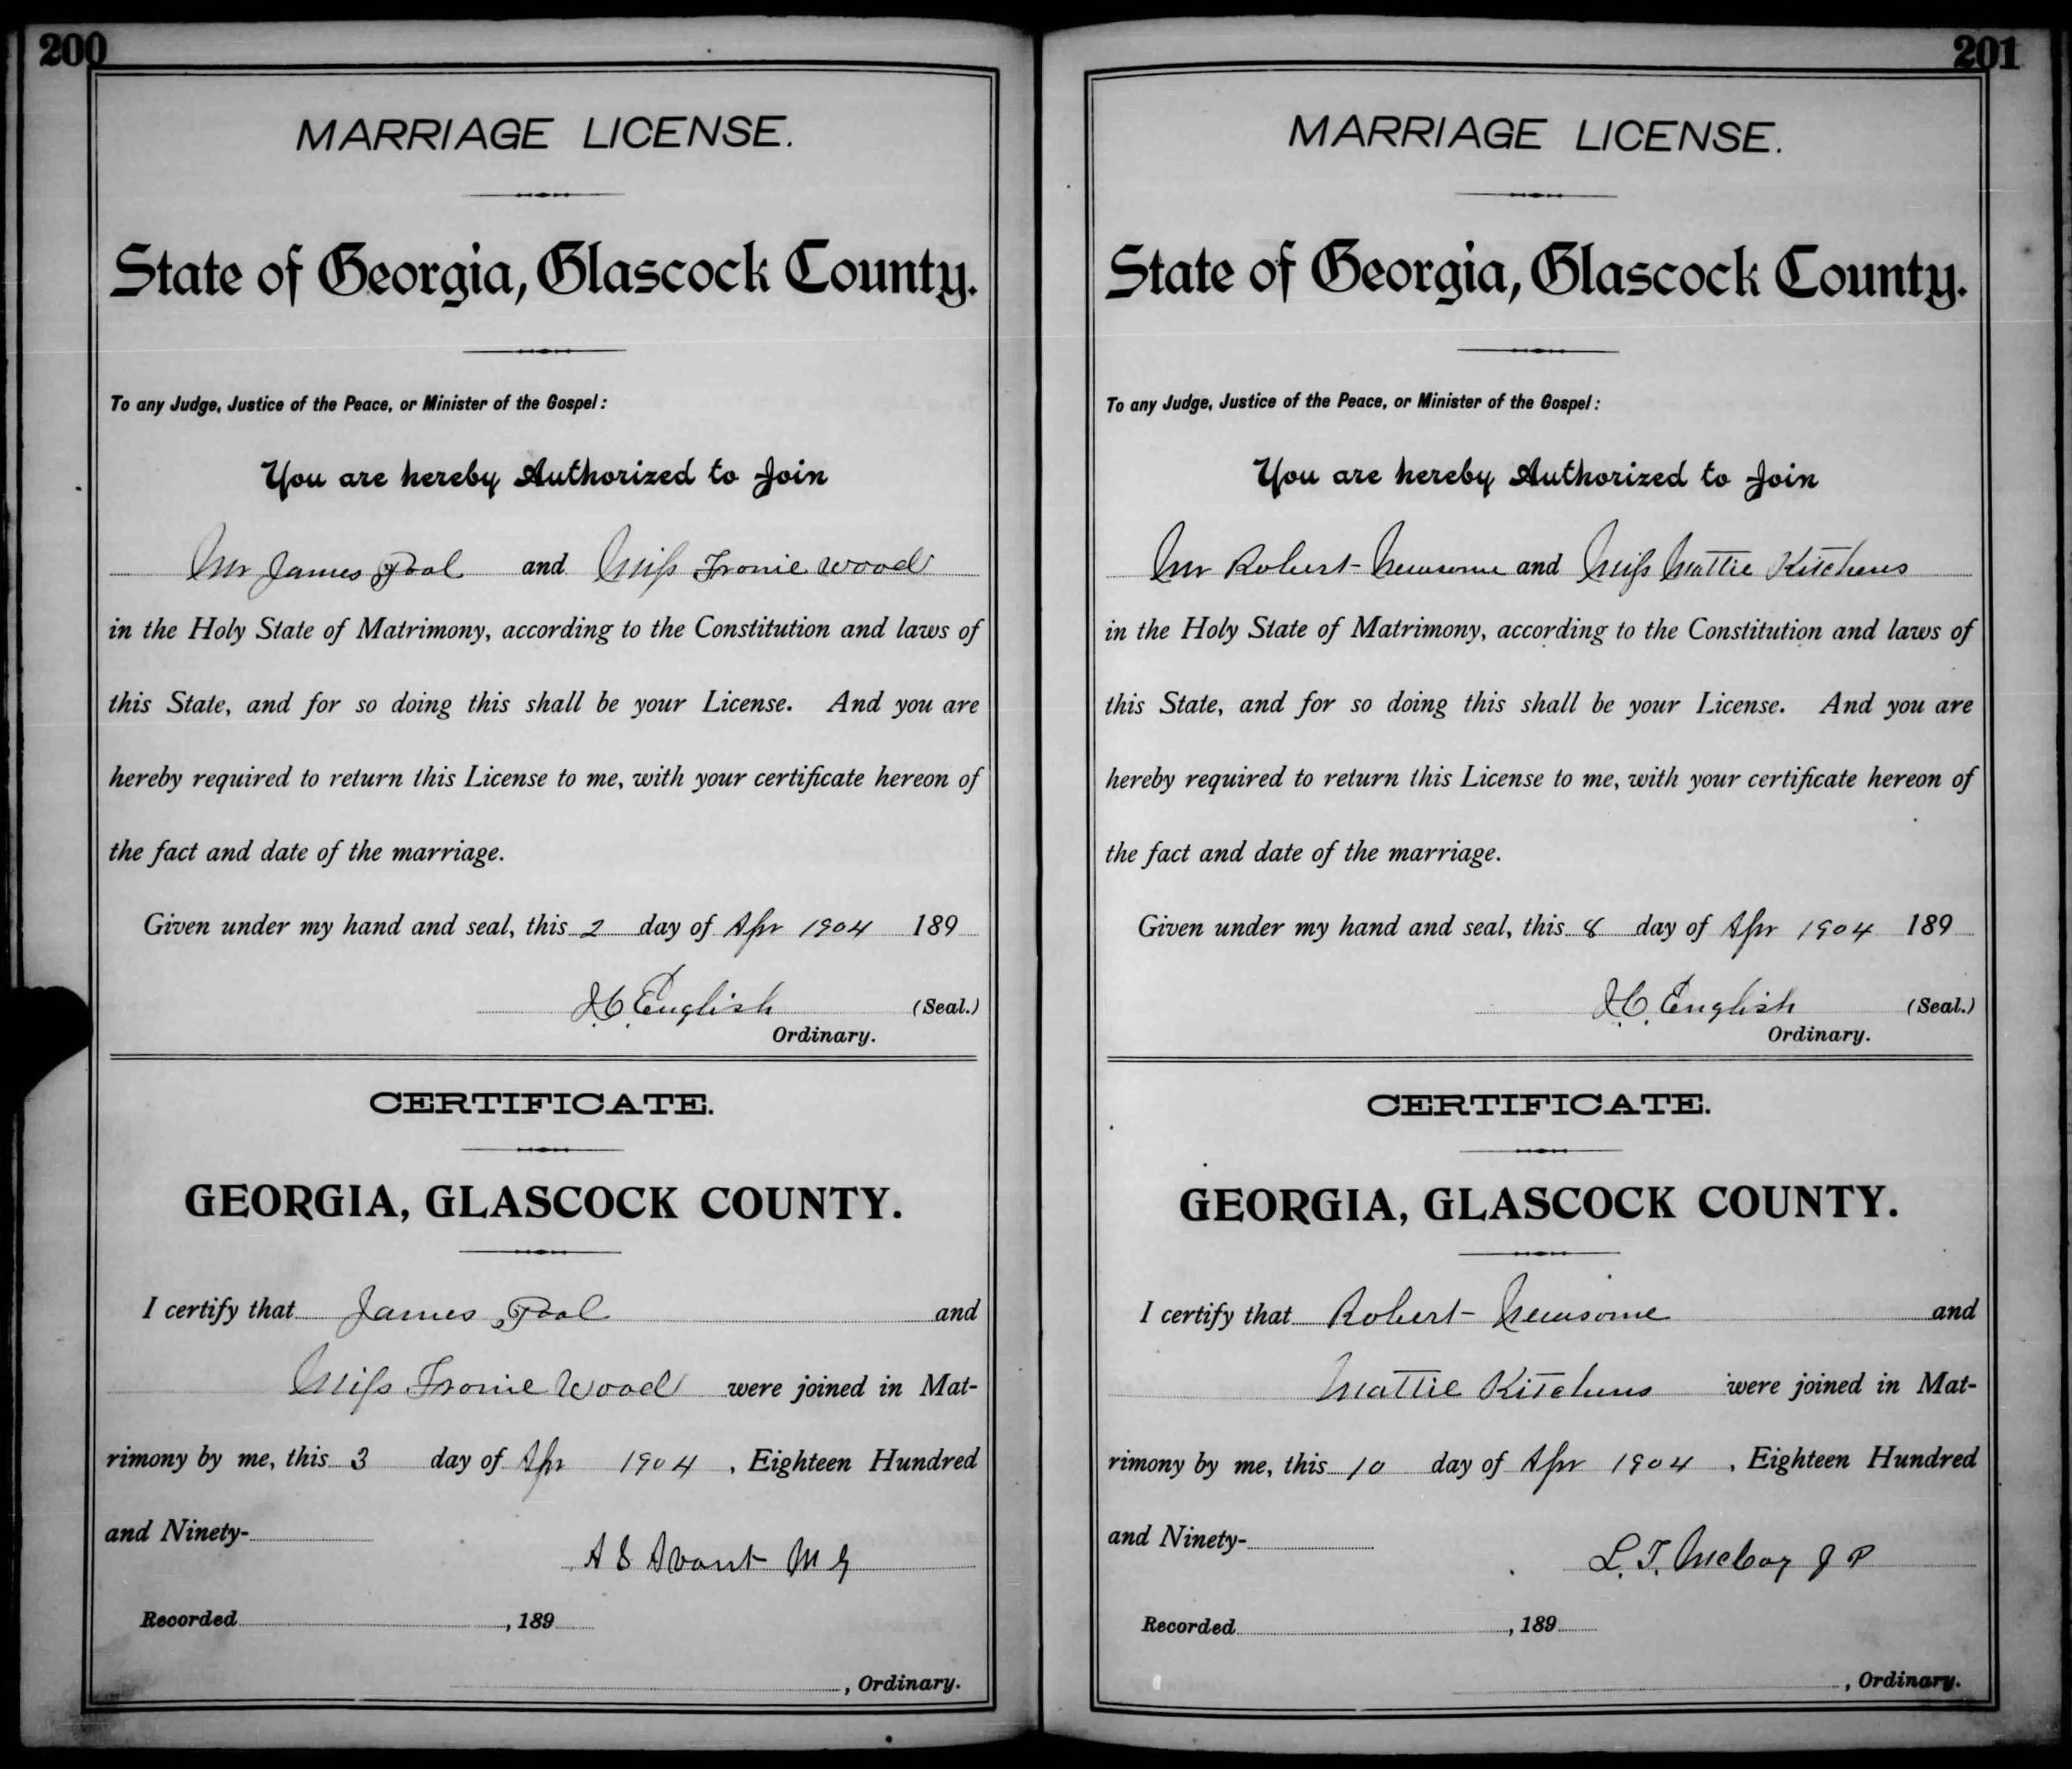 200
MARRIAGE LICENSE.
State of Georgia, Glascock County.
To any Judge, Justice of the Peace, or Minister of the Gospel:
You are hereby Authorized to Join
Mr James Pool and Miss Fronie Wood
in the Holy State of Matrimony, according to the Constitution and laws of
this State, and for so doing this shall be your License. And you are
hereby required to return this License to me, with your certificate hereon of
the fact and date of the marriage.
Given under my hand and seal, this 2 day of Apr 1904 189
J.C. English (Seal.)
Ordinary.
CERTIFICATE.
GEORGIA, GLASCOCK COUNTY.
I certify that James Pool and
Miss Fronie Wood were joined in Mat-
rimony by me, this 3 day of Apr 1904, Eighteen Hundred
and Ninety-
A E Avant M G
Recorded , 189
, Ordinary.
201
MARRIAGE LICENSE.
State of Georgia, Glascock County.
To any Judge, Justice of the Peace, or Minister of the Gospel:
You are hereby Authorized to Join
Mr Robert Newsome and Miss Mattie Kitchens
in the Holy State of Matrimony, according to the Constitution and laws of
this State, and for so doing this shall be your License. And you are
hereby required to return this License to me, with your certificate hereon of
the fact and date of the marriage.
Given under my hand and seal, this 8 day of Apr 1904 189
J.C. English (Seal.)
Ordinary.
CERTIFICATE.
GEORGIA, GLASCOCK COUNTY.
I certify that Robert Newsome and
Mattie Kitchens were joined in Mat-
rimony by me, this 10 day of Apr 1904, Eighteen Hundred
and Ninety-
L. T. McCoy J P
Recorded , 189
, Ordinary.